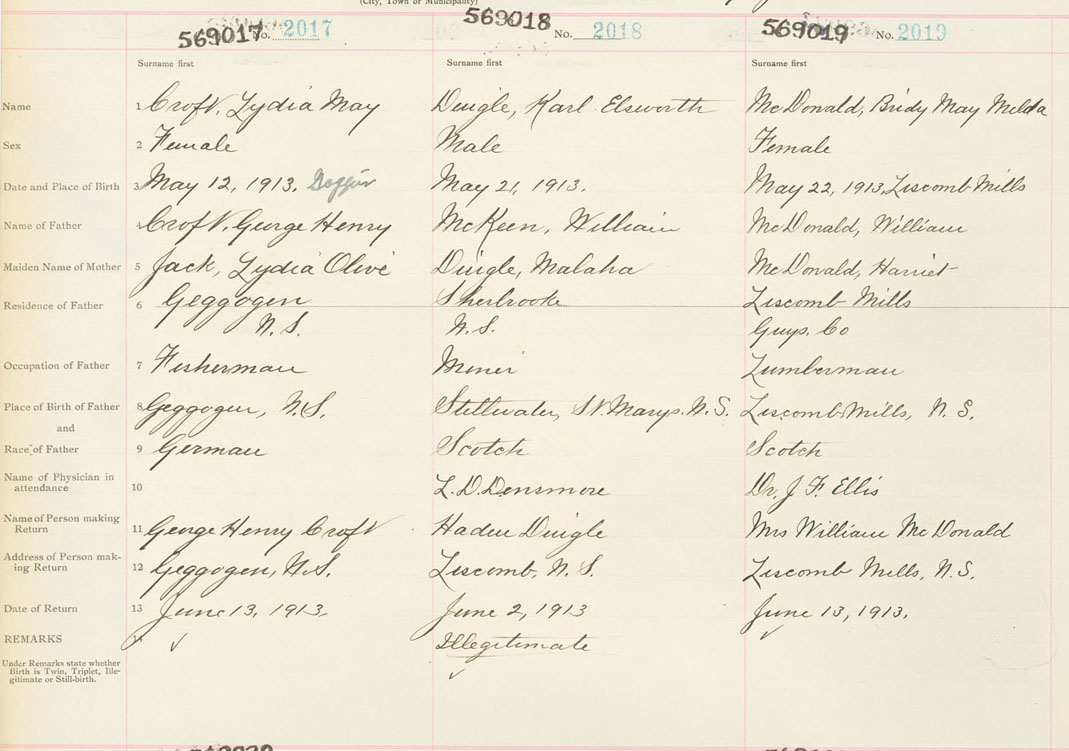 (City, Town or Municipality)
569017 No. 2017
569018 No. 2018
569019 No. 2019
Surname first
Surname first
Surname first
Name 1 Croft, Lydia May
Dingle, Karl Elsworth
McDonald, Bridy May Melda
Sex 2 Female
Male
Female
Date and Place of Birth 3 May 12, 1913.
May 21, 1913.
May 22, 1913, Liscomb Mills
Name of Father 4 Croft, George Henry
McKeen, William
McDonald, William
Maiden Name of Mother 5 Jack, Lydia Olive
Dingle, Malaha
McDonald, Harriet
Residence of Father 6 Geggogen
N.S.
Sherbrooke
N.S.
Liscomb Mills
Guys. Co
Occupation of Father 7 Fisherman
Miner
Lumberman
Place of Birth of Father 8 Geggogen, N.S.
Stillwater, St Marys. N.S.
Liscomb Mills, N.S.
and
Race of Father 9 German
Scotch
Scotch
Name of Physician in
attendance 10
L.D. Densmore
Dr. J F. Ellis
Name of Person making
Return 11 George Henry Croft
Haden Dingle
Mrs William McDonald
Address of Person mak-
ing Return 12 Geggogen, N.S.
Liscomb, N.S.
Liscomb Mills, N.S.
Date of Return 13 June 13, 1913.
June 2, 1913
June 13, 1913.
REMARKS
Illegitimate
Under Remarks state whether
Birth is Twin, Triplet, Ille-
gitimate or Still-birth.